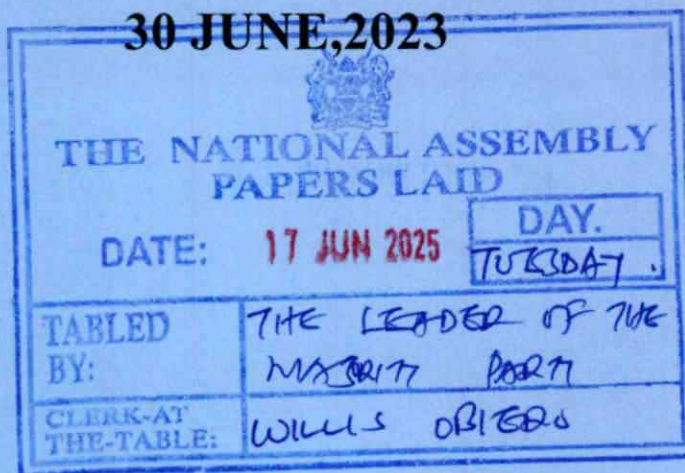 30 JUNE,2023
THE NATIONAL ASSEMBLY
PAPERS LAID
DATE: 17 JUN 2025
DAY.
TUESDAY.
TABLED BY:
THE LEADER OF THE
MAJORITY PARTY
CLERK-AT THE-TABLE:
WILLIS OBIERO